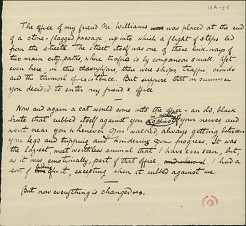 13A-40
The office of my friend Mr. Williams was placed at the end
of a stone-flagged passage, up into which a flight of steps led
from the streets. The street itself was one of those link-ways of
two main city paths, where traffic is by comparison small. Yet
even here in this thoroughfare, there are shops, traffic
and the turmoil of existence. But suppose that in summer
you decided to enter my friend's office
Now and again a cat would come into the office - an old, black
brute that rubbed itself against you your nerves, and
went near you whenever you walked always getting between
your legs and tripping and hindering your progress. It was
the largest, most worthless animal that I have ever seen, but,
as it was, emotionally, part of that office I had a
sort of for it, excepting when it rubbed against me.
But now everything is changed